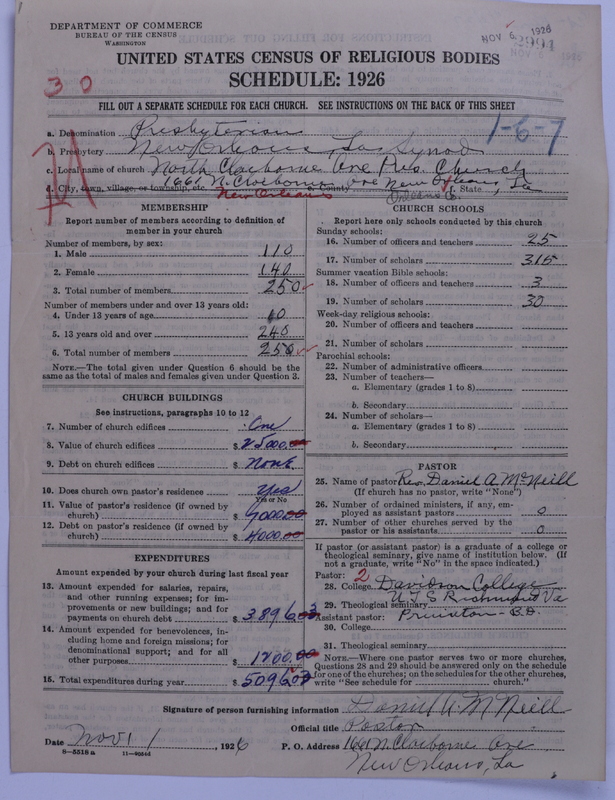 DEPARTMENT OF COMMERCE
BUREAU OF THE CENSUS
WASHINGTON
NOV 6, 1926
UNITED STATES CENSUS OF RELIGIOUS BODIES
SCHEDULE: 1926
30
FILL OUT A SEPARATE SCHEDULE FOR EACH CHURCH. SEE INSTRUCTIONS ON THE BACK OF THIS SHEET
1-6-7
a. Denomination Presbyterian
b. Presbytery New Orleans, La Synod
c. Local name of church North Claiborne Ave Pres. Church
d. City, town, village, or township, etc. 1661 N. Claiborne Ave New Orleans, f. State La
New Orleans
Orleans Co.
MEMBERSHIP
Report number of members according to definition of
member in your church
Number of members, by sex:
1. Male 110
2. Female 140
3. Total number of members 250
Number of members under and over 13 years old:
4. Under 13 years of age 10
5. 13 years old and over 240
6. Total number of members 250
NOTE.—The total given under Question 6 should be the
same as the total of males and females given under Question 3.
CHURCH BUILDINGS
See instructions, paragraphs 10 to 12
7. Number of church edifices One
8. Value of church edifices $ 25000.00
9. Debt on church edifices $ None
10. Does church own pastor's residence Yes
Yes or No
11. Value of pastor's residence (if owned by
church) $ 9000.00
12. Debt on pastor's residence (if owned by
church) $ 4000.00
EXPENDITURES
Amount expended by your church during last fiscal year
13. Amount expended for salaries, repairs,
and other running expenses; for im-
provements or new buildings; and for
payments on church debt $ 3896.03
14. Amount expended for benevolences, in-
cluding home and foreign missions; for
denominational support; and for all
other purposes $ 1200.00
15. Total expenditures during year $ 5096.03
CHURCH SCHOOLS
Report here only schools conducted by this church
Sunday schools:
16. Number of officers and teachers 25
17. Number of scholars 315
Summer vacation Bible schools:
18. Number of officers and teachers 3
19. Number of scholars 30
Week-day religious schools:
20. Number of officers and teachers
21. Number of scholars
Parochial schools:
22. Number of administrative officers
23. Number of teachers—
a. Elementary (grades 1 to 8)
b. Secondary
24. Number of scholars—
a. Elementary (grades 1 to 8)
b. Secondary
PASTOR
25. Name of pastor Rev. Daniel A. McNeill
(If church has no pastor, write "None")
26. Number of ordained ministers, if any, em-
ployed as assistant pastors 0
27. Number of other churches served by the
pastor or his assistants 0
If pastor (or assistant pastor) is a graduate of a college or
theological seminary, give name of institution below. (If
not a graduate, write "No" in the space indicated.)
Pastor: 2
28. College Davidson College
29. Theological seminary U.T.S Richmond Va
Assistant pastor: Princeton - B.D.
30. College
31. Theological seminary
NOTE.—Where one pastor serves two or more churches,
Questions 28 and 29 should be answered only on the schedule
for one of the churches; on the schedules for the other churches,
write "See schedule for church."
Signature of person furnishing information Daniel A. McNeill
Official title Pastor
Date Nov 1, 1926 P. O. Address 1661 N. Claiborne Ave
New Orleans, La
8—5518 a